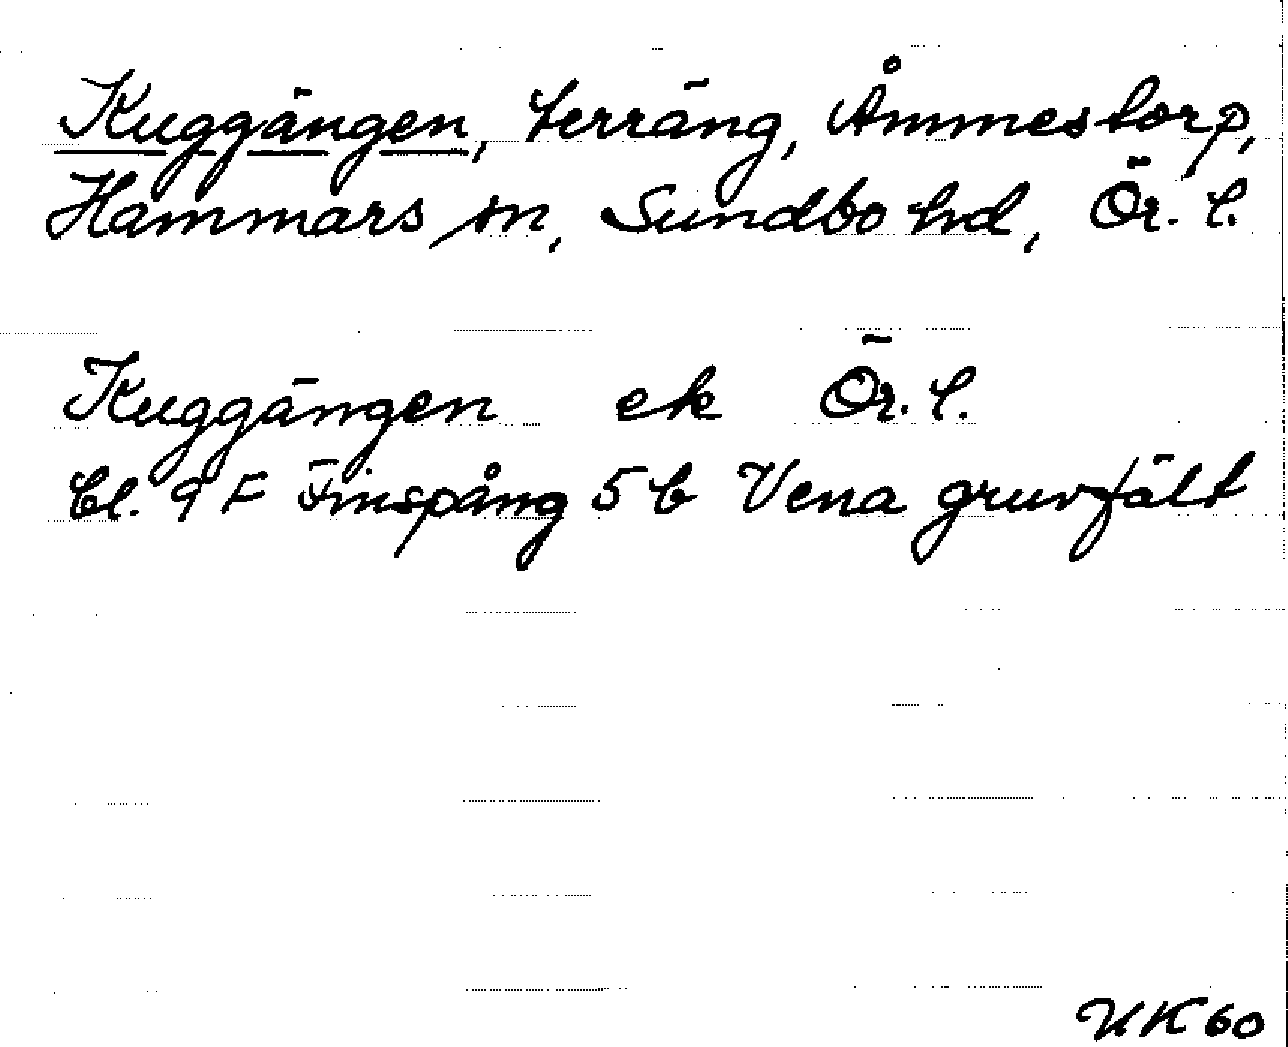 Kuggängen, terräng, Åmmestorp,
Hammars sn, Sundbo hd, Ör. l.
Kuggängen ek Ör. l.
bl. 9 F Finspång 5 b Vena gruvfält
UK 60